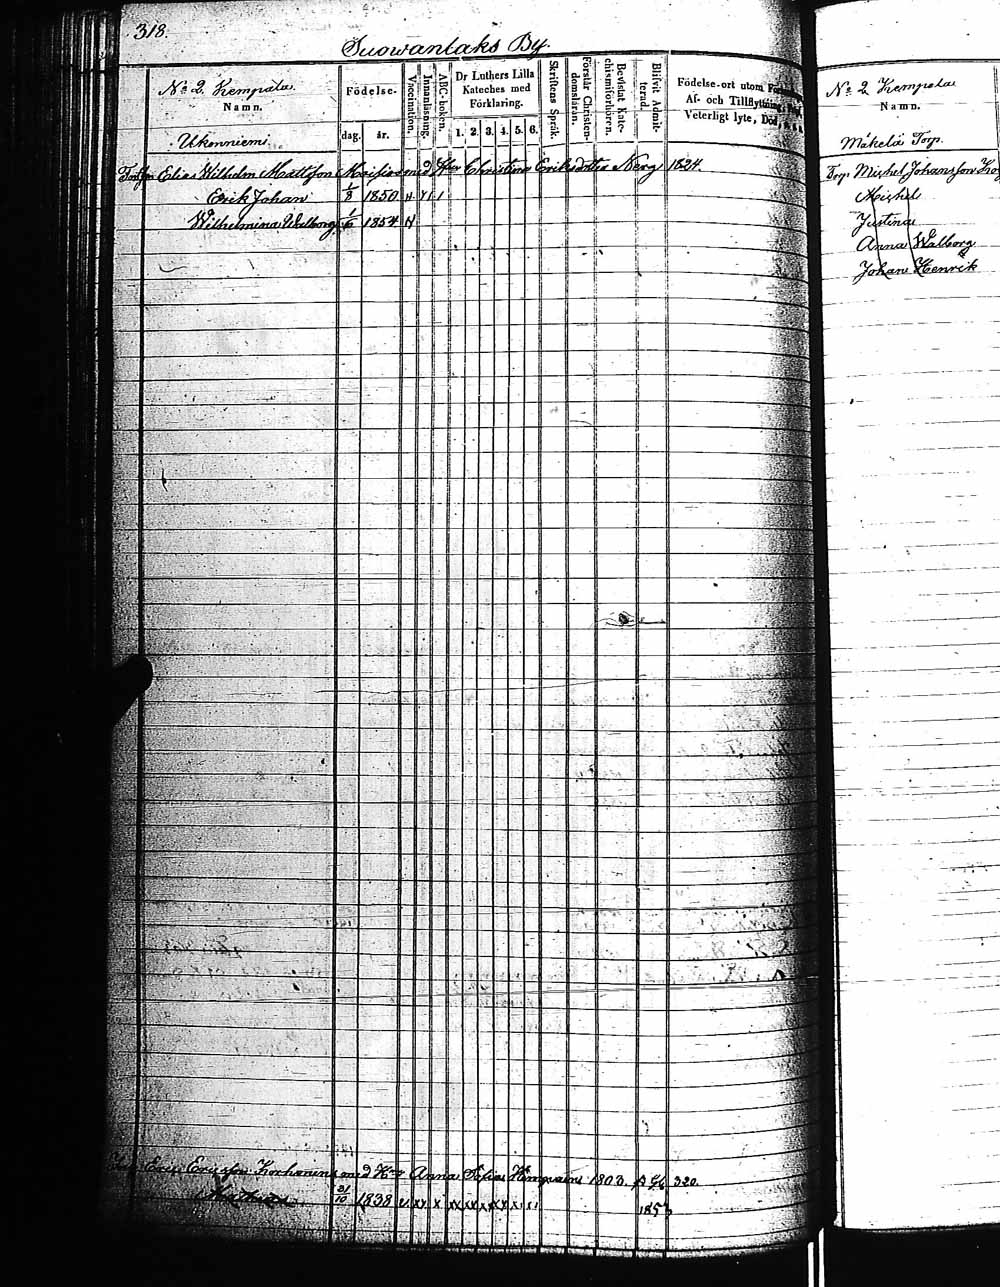 318.
Suowanlaks By.
No 2. Kempala
Namn.
Ukonniemi
Födelse-
dag. år.
Vaccination.
Innanläsning.
ABC-boken.
Dr Luthers Lilla
Kateches med
Förklaring.
1. 2. 3. 4. 5. 6.
Skriftens Språk.
Förstår Christen-
domsläran.
Bevistat Kate-
chismiförhören.
Blifvit Admit-
terad.
Födelse-ort utom
Af- och Tillflyttning
Veterligt lyte, Död
Elias Wilhelm Mattsson med Hru Christina Eriksdotter 1824.
Erik Johan 1/8 1850
Wilhelmina Walborg 1/6 1854
Ericsson Korhonen med Hru Anna Sofia 1803. 320.
31/10 1838
1853
No 2 Kempala
Namn.
Mäkelä Torp.
Torp. Michel Johansson
Michel
Justina
Anna Walborg
Johan Henrik